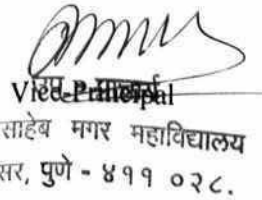 Vice-Principal
साहेब मगर महाविद्यालय
सर, पुणे - ४११ ०२८.